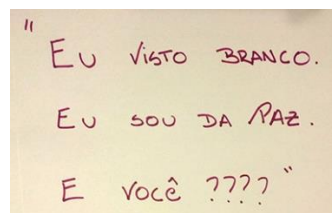 "EU VISTO BRANCO.
EU SOU DA PAZ.
E VOCÊ ????"